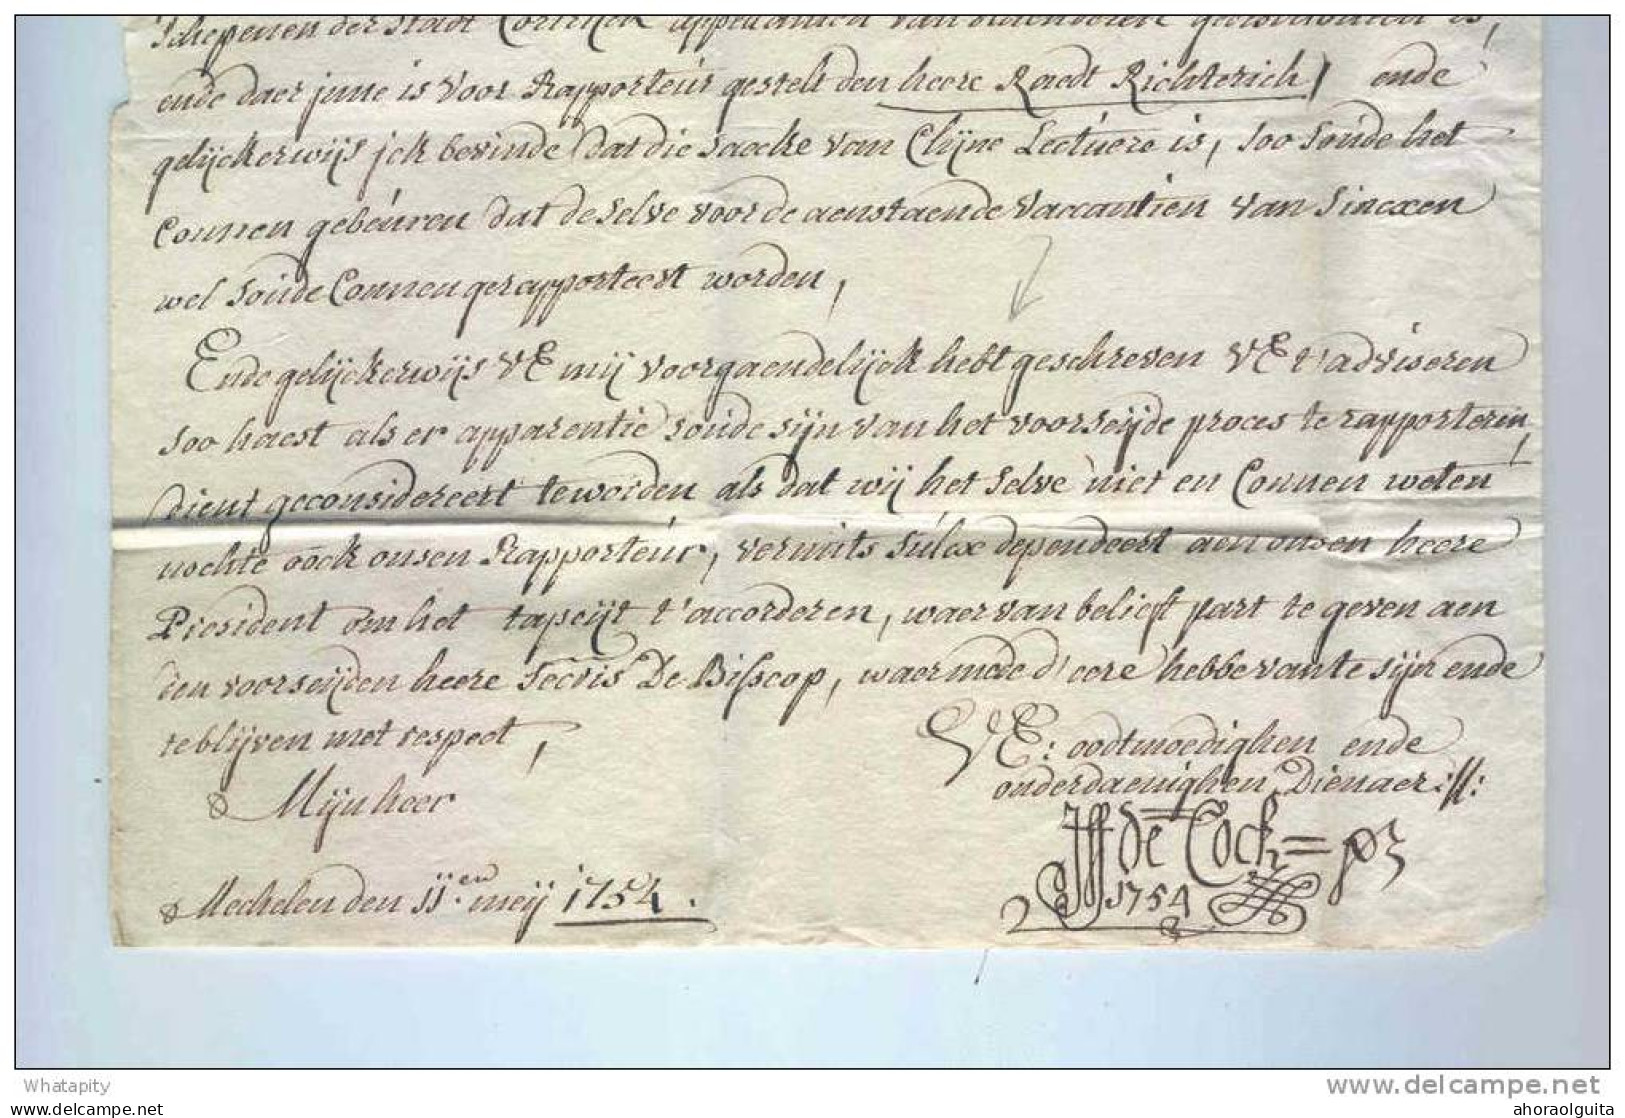 Schepenen der Stadt Cortrijck appellanten van
ende daer inne is voor Rapporteur gestelt den heere Raedt Richterich) ende
gelijckerwijs jck bevinde dat die saecke van Clijne Lectuere is, soo soude het
Connen gebeuren dat de selve voor de aenstaende vaccantien van Sincxen
wel soude Connen gerapporteert worden,
Ende gelijckerwijs VE mij voorgaendelijck hebt geschreven VE t'adviseren
soo haest als er apparentie soude sijn van het voorseijde proces te rapporteren,
dient geconsidereert te worden als dat wij het selve niet en Connen weten
nochte oock onsen Rapporteur, vermits sulcx dependeert aen onsen heere
President om het tapeijt t'accorderen, waer van belieft part te geven aen
den voorseijden heere Secris De Bisscop, waermede d'eere hebbe vante sijn ende
te blijven met respect,
Mijn heer
VE: oodtmoedighen ende
onderdaenighen Dienaer://:
JFF de Cock = pr
1754
Mechelen den 11en meij 1754.
Whatapity
www.delcampe.net
ahoraolguita